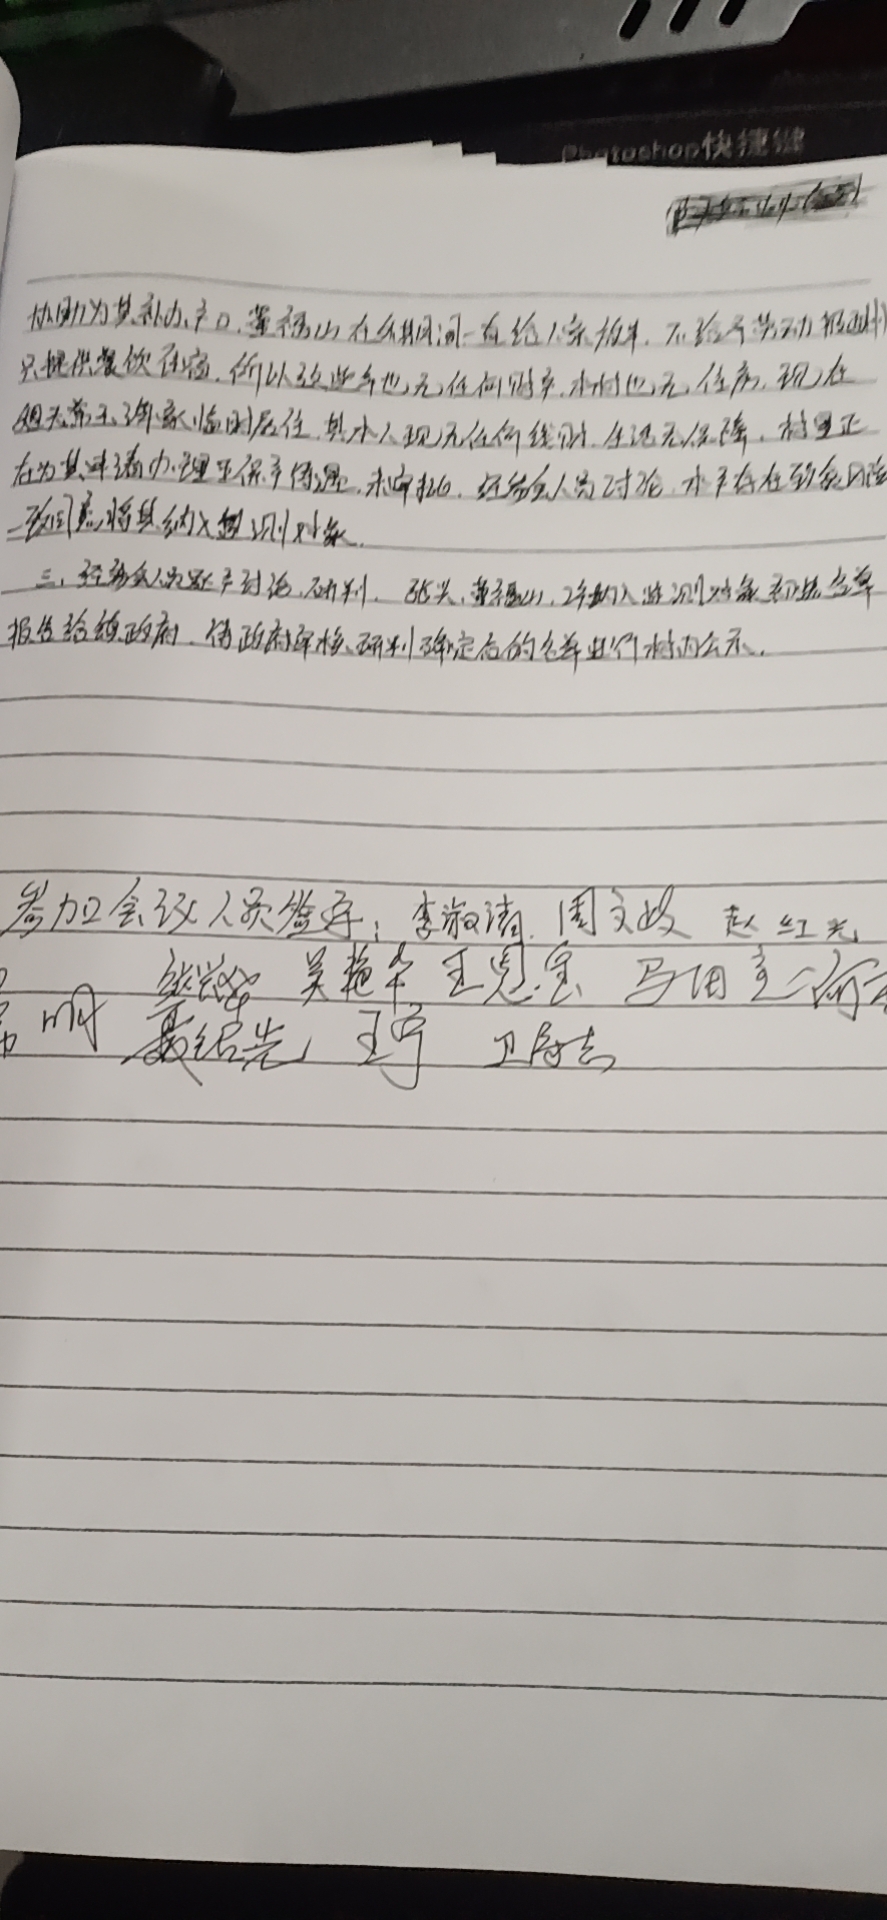 Photoshop快捷键
协助为其补办户口,董福山在外期间一直给人家放羊,不给予劳动报酬
只提供餐饮住宿,所以这些年也无任何财产,本村也无住房,现在
姐夫常玉海家临时居住,其本人现无任何钱财,生活无保障,村里正
在为其申请办理五保户待遇,未审批,经参会人员讨论,本户存在致贫风险
一致同意将其纳入监测对象.
三、经参会人员逐户讨论、研判,张兴,董福山,2户纳入监测对象初选名单
报告给镇政府,待政府审核、研判确定后的名单进行村内公示.
参加会议人员签字:李淑清 周文 赵红光
吴艳华 王恩宝 马田
聂绍先 王宇 卫